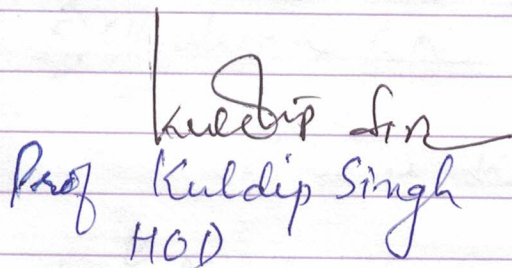 Kuldip Sin
Prof Kuldip Singh
HOD